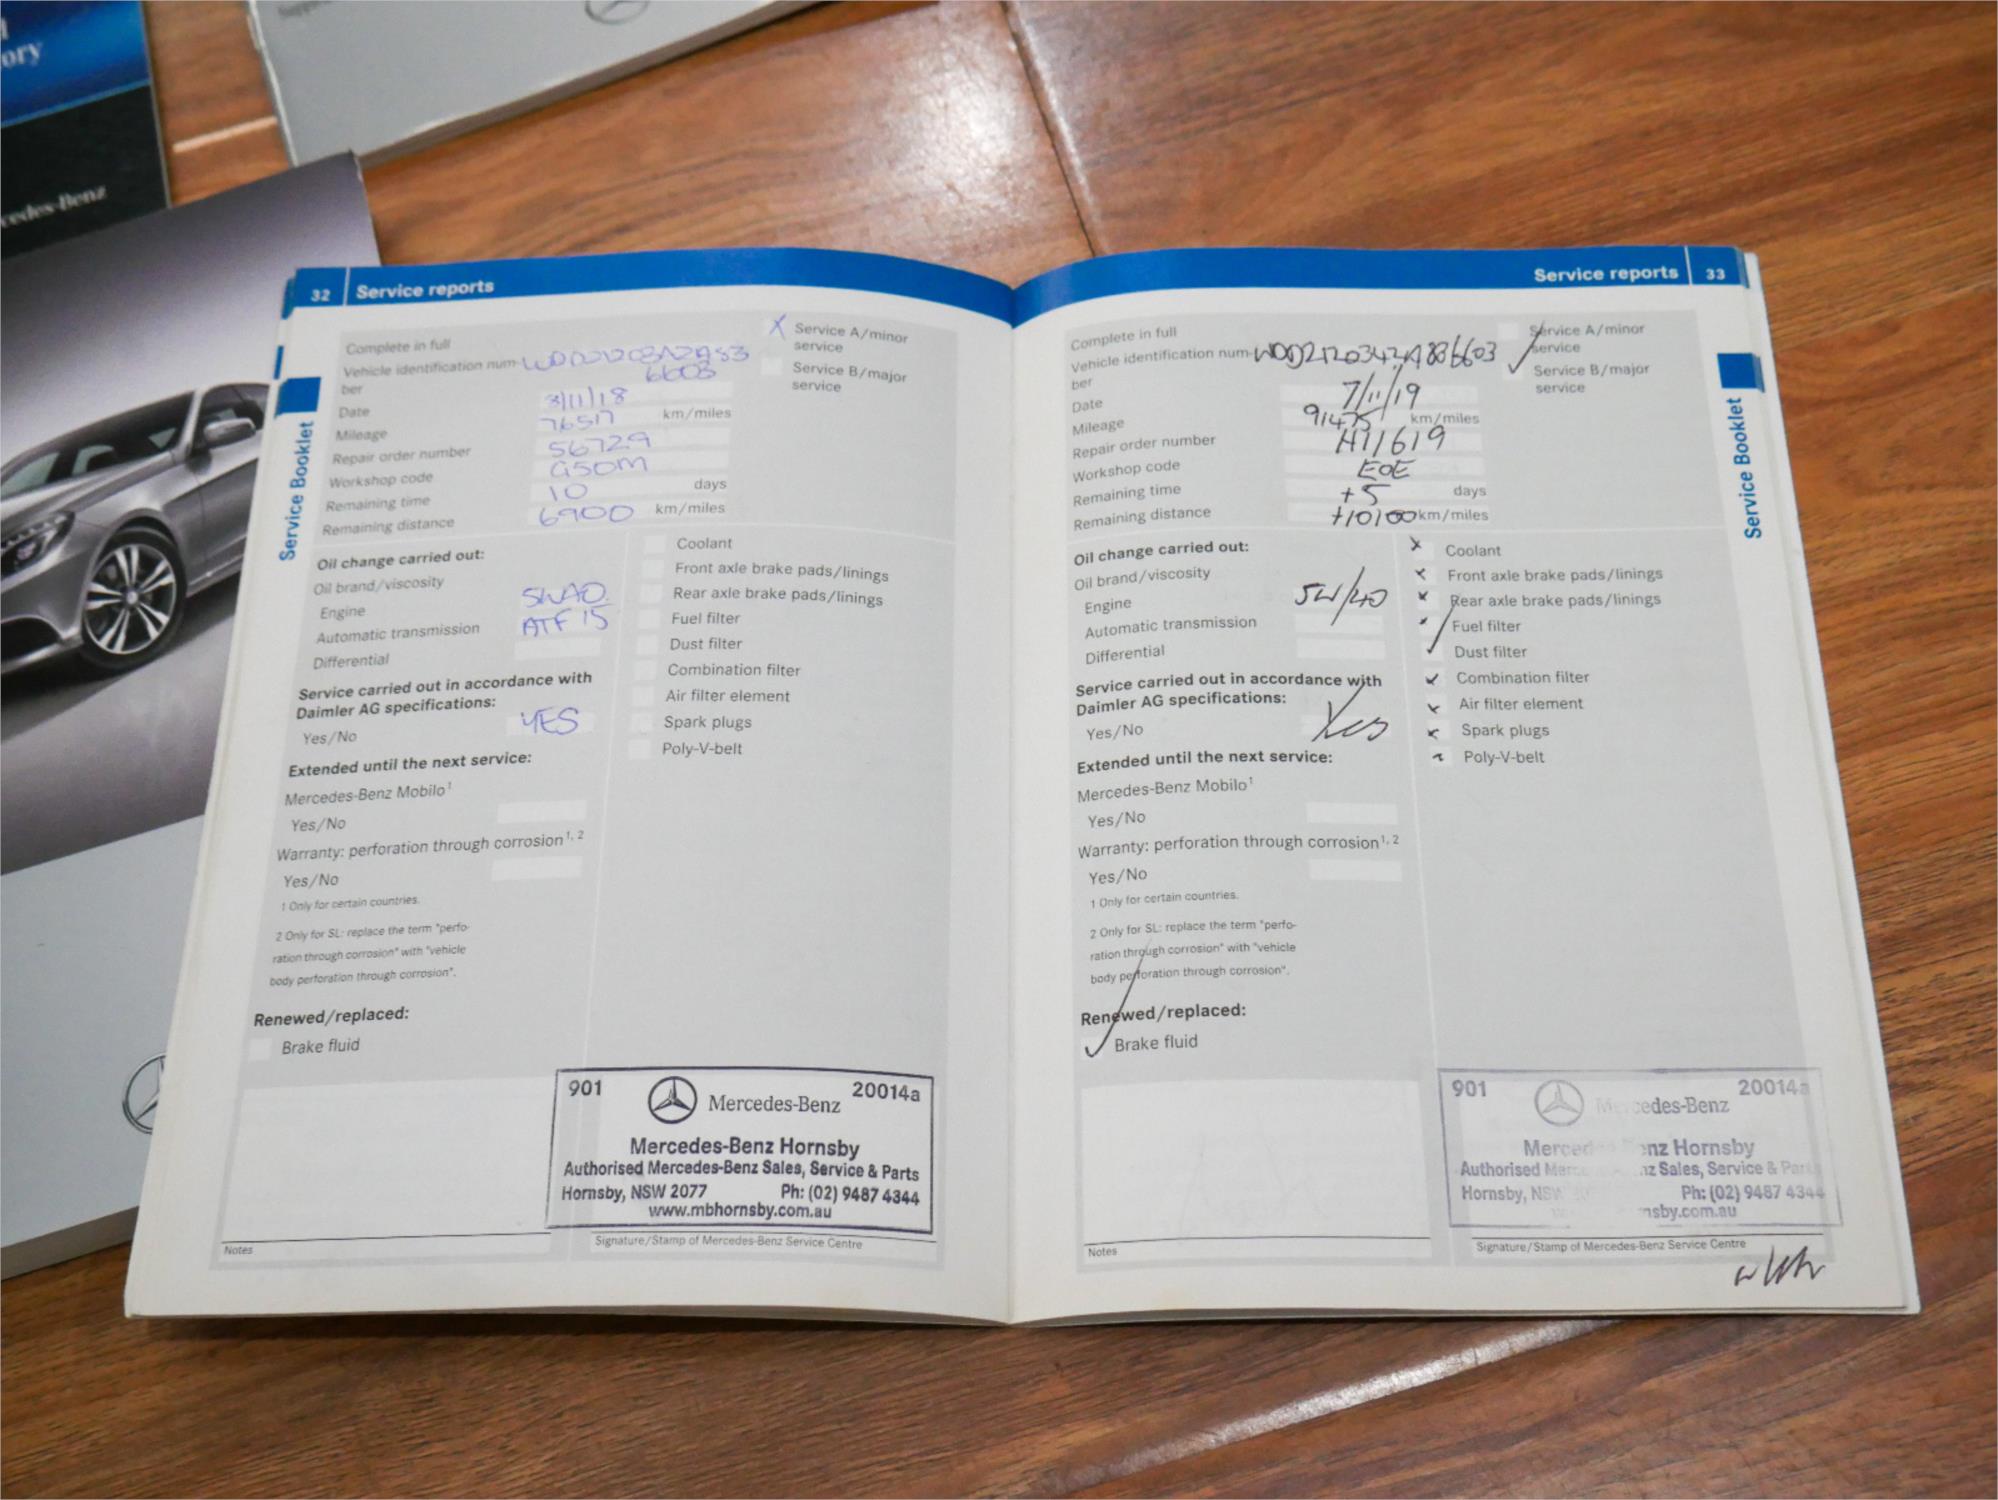 ory
cedes-Benz
32 Service reports
Complete in full
Vehicle identification num-
ber
Date 8/11/18
Mileage 76517 km/miles
Repair order number 56729
Workshop code G50M
Remaining time 10 days
Remaining distance 6900 km/miles
X Service A/minor
service
Service B/major
service
Oil change carried out:
Oil brand/viscosity
Engine 5W40
Automatic transmission ATF 15
Differential
Service carried out in accordance with
Daimler AG specifications:
Yes/No YES
Extended until the next service:
Mercedes-Benz Mobilo1
Yes/No
Warranty: perforation through corrosion1, 2
Yes/No
1 Only for certain countries.
2 Only for SL: replace the term "perfo-
ration through corrosion" with "vehicle
body perforation through corrosion".
Renewed/replaced:
Brake fluid
Coolant
Front axle brake pads/linings
Rear axle brake pads/linings
Fuel filter
Dust filter
Combination filter
Air filter element
Spark plugs
Poly-V-belt
901 Mercedes-Benz 20014a
Mercedes-Benz Hornsby
Authorised Mercedes-Benz Sales, Service & Parts
Hornsby, NSW 2077 Ph: (02) 9487 4344
www.mbhornsby.com.au
Notes
Signature/Stamp of Mercedes-Benz Service Centre
Service Booklet
Service reports 33
Complete in full
Vehicle identification num-
ber
Date 7/11/19
Mileage 91475 km/miles
Repair order number H11619
Workshop code EOE
Remaining time +5 days
Remaining distance +10100 km/miles
Service A/minor
service
Service B/major
service
Oil change carried out:
Oil brand/viscosity
Engine 5W/40
Automatic transmission
Differential
Service carried out in accordance with
Daimler AG specifications:
Yes/No Yes
Extended until the next service:
Mercedes-Benz Mobilo1
Yes/No
Warranty: perforation through corrosion1, 2
Yes/No
1 Only for certain countries.
2 Only for SL: replace the term "perfo-
ration through corrosion" with "vehicle
body perforation through corrosion".
Renewed/replaced:
Brake fluid
Coolant
Front axle brake pads/linings
Rear axle brake pads/linings
Fuel filter
Dust filter
Combination filter
Air filter element
Spark plugs
Poly-V-belt
901 Mercedes-Benz 20014a
Mercedes-Benz Hornsby
Authorised Mercedes-Benz Sales, Service & Parts
Hornsby, NSW Ph: (02) 9487 4344
nsby.com.au
Notes
Signature/Stamp of Mercedes-Benz Service Centre
Service Booklet